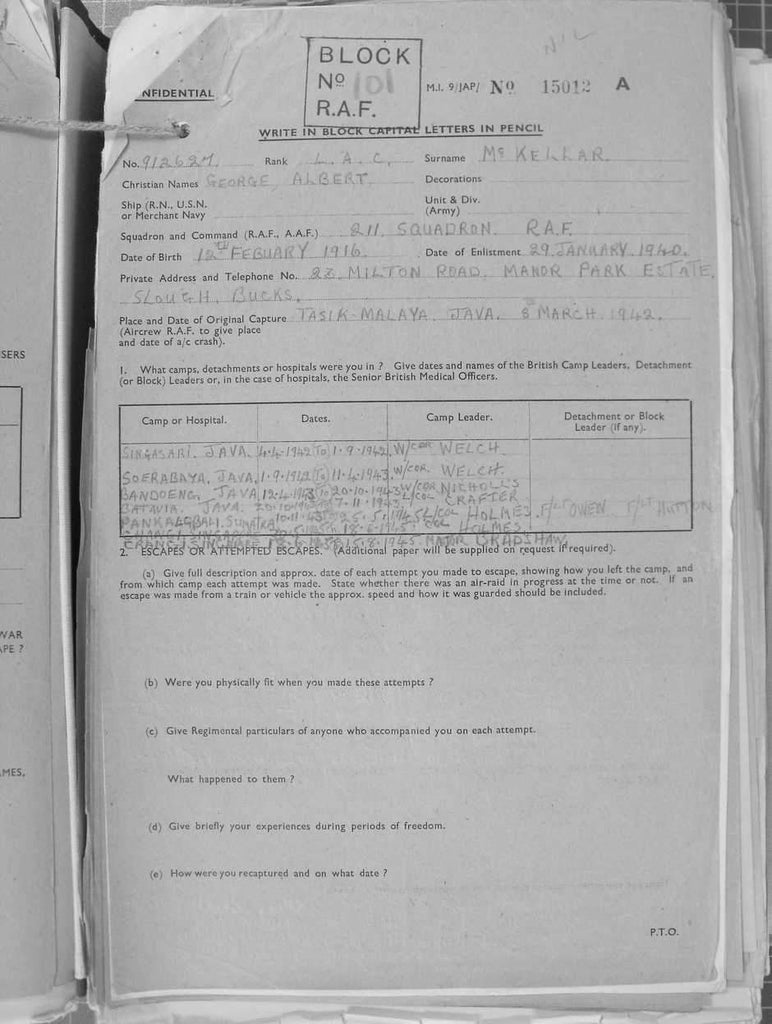 NIL
BLOCK
Nº 101
R.A.F.
NFIDENTIAL
M.I. 9/JAP/ Nº 15012 A
WRITE IN BLOCK CAPITAL LETTERS IN PENCIL
No. 912627. Rank L.A.C. Surname McKELLAR.
Christian Names GEORGE ALBERT. Decorations
Ship (R.N., U.S.N. or Merchant Navy
Unit & Div. (Army)
Squadron and Command (R.A.F., A.A.F.) 211 SQUADRON. R.A.F.
Date of Birth 12TH FEBUARY 1916. Date of Enlistment 29 JANUARY 1940.
Private Address and Telephone No. 23. MILTON ROAD. MANOR PARK ESTATE,
SLOUGH. BUCKS.
Place and Date of Original Capture TASIK-MALAYA. JAVA. 8 MARCH. 1942.
(Aircrew R.A.F. to give place
and date of a/c crash).
1. What camps, detachments or hospitals were you in ? Give dates and names of the British Camp Leaders, Detachment
(or Block) Leaders or, in the case of hospitals, the Senior British Medical Officers.
Camp or Hospital. Dates. Camp Leader. Detachment or Block Leader (if any).
SINGASARI. JAVA. 4-4-1942 TO 1-9-1942 W/CDR WELCH
SOERABAYA. JAVA. 1-9-1942 TO 11-4-1943 W/CDR. WELCH.
BANDOENG. JAVA 12-4-1943 TO 20-10-1943 W/CDR NICHOLLS
BATAVIA. JAVA. 20-10-1943 7-11-1943 L/COL CRAFTER
PANKALANBALI. SUMATRA 10-11-43 25-5-1945 L/COL HOLMES F/LT OWEN F/LT HUTTON
HOLMES.
MAJOR BRADSHAW
2. ESCAPES OR ATTEMPTED ESCAPES. (Additional paper will be supplied on request if required).
(a) Give full description and approx. date of each attempt you made to escape, showing how you left the camp, and
from which camp each attempt was made. State whether there was an air-raid in progress at the time or not. If an
escape was made from a train or vehicle the approx. speed and how it was guarded should be included.
(b) Were you physically fit when you made these attempts ?
(c) Give Regimental particulars of anyone who accompanied you on each attempt.
What happened to them ?
(d) Give briefly your experiences during periods of freedom.
(e) How were you recaptured and on what date ?
P.T.O.
SERS
WAR
APE ?
MES,